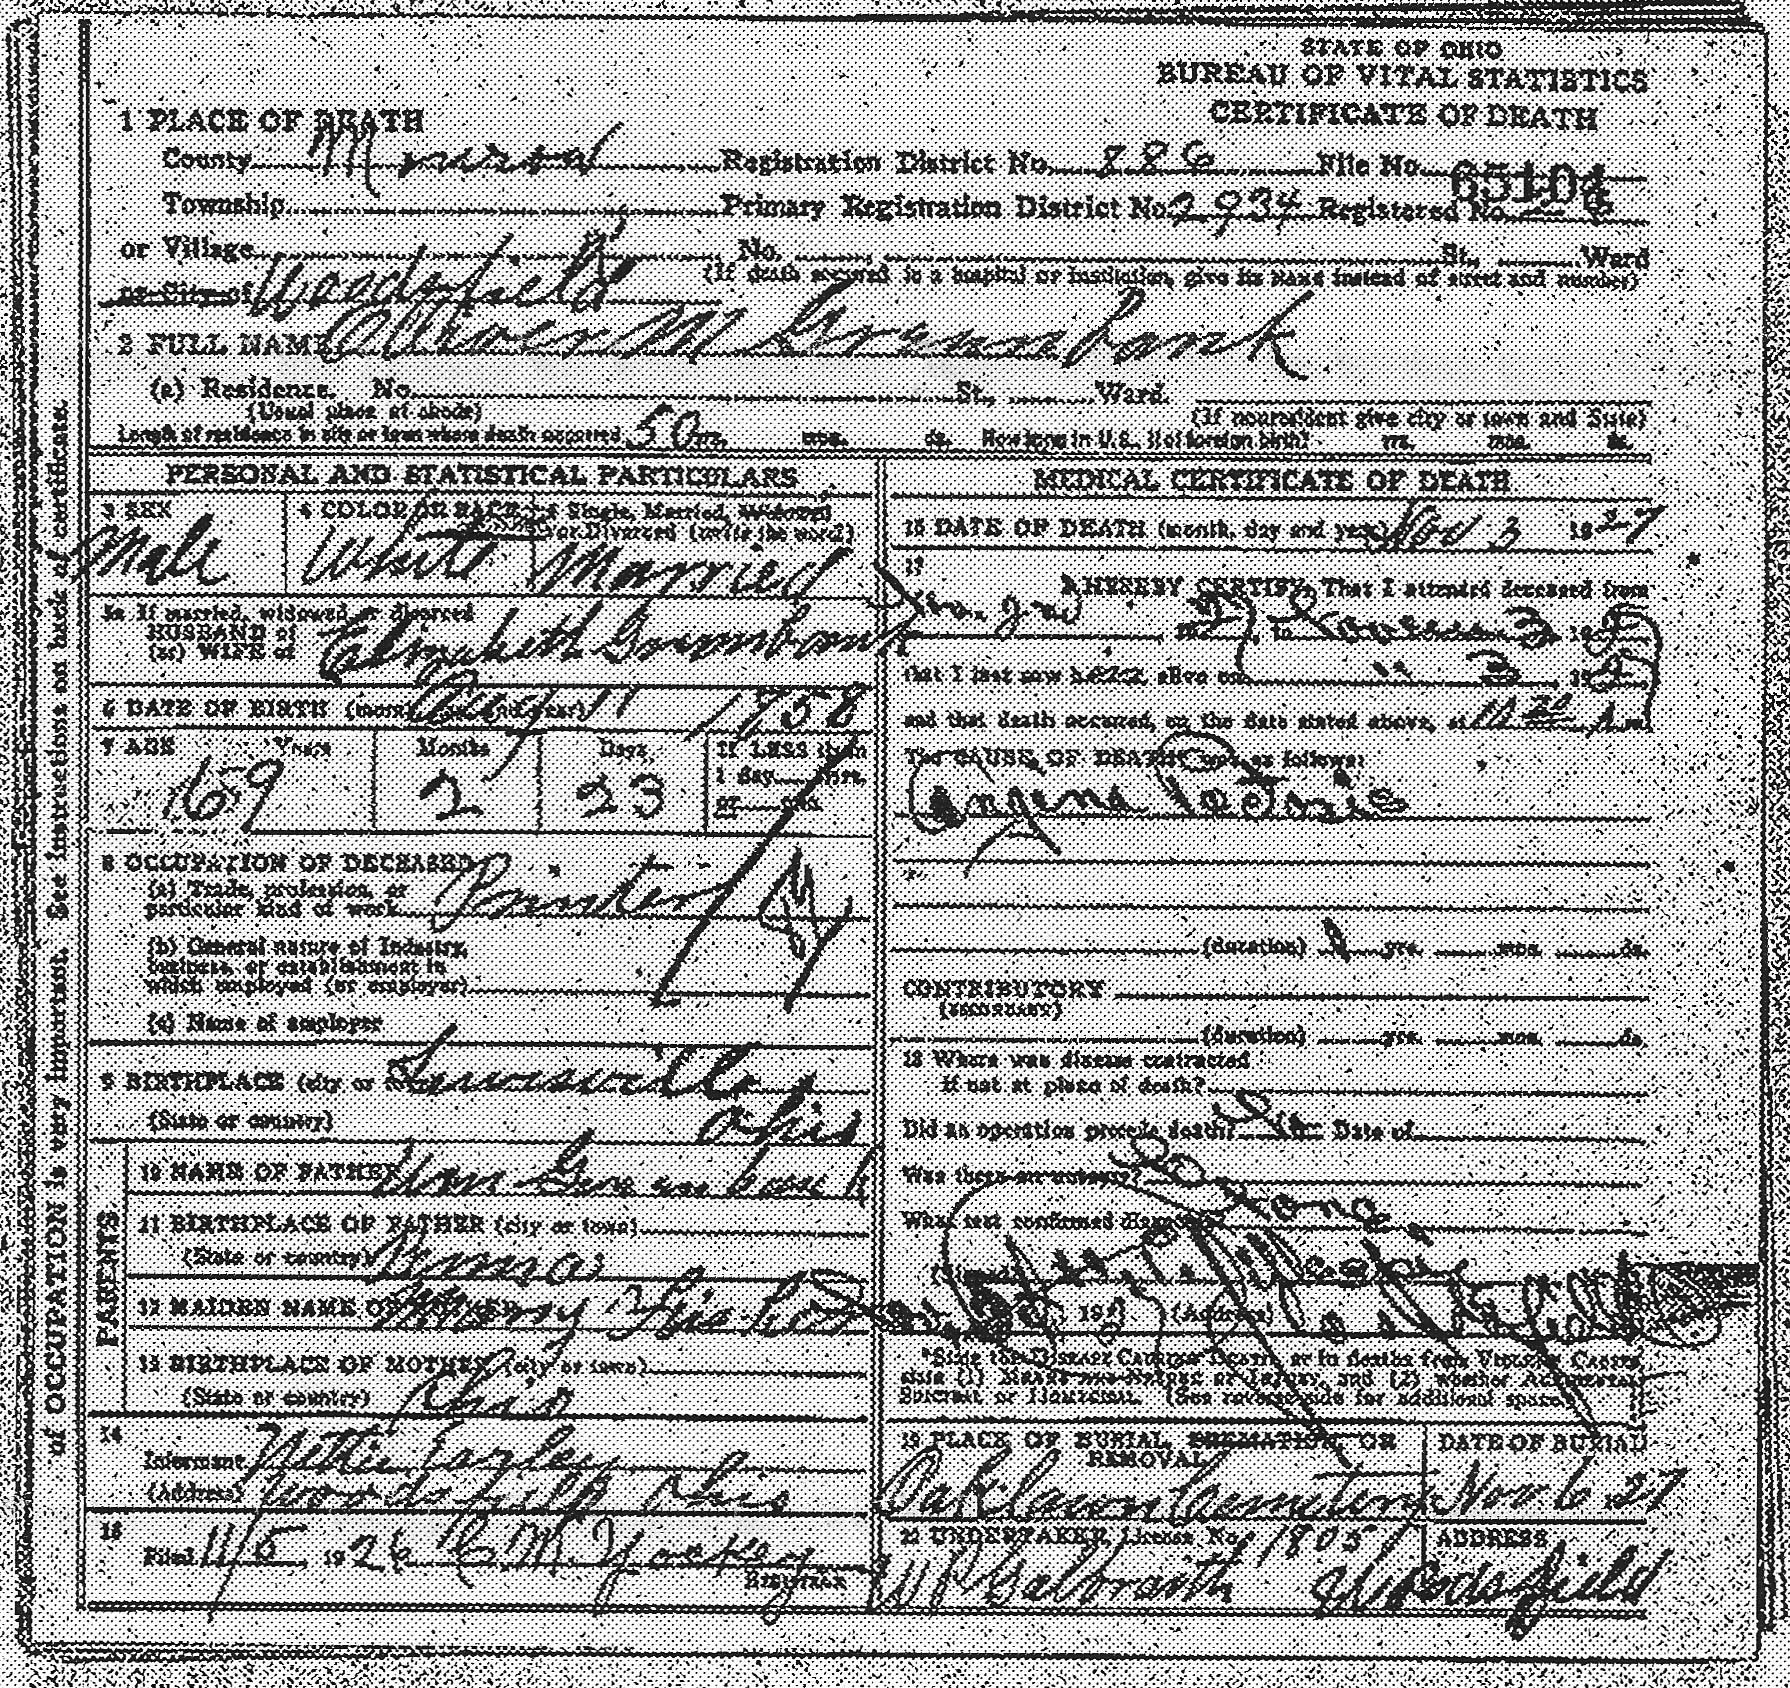 STATE OF OHIO
BUREAU OF VITAL STATISTICS
CERTIFICATE OF DEATH
1 PLACE OF DEATH
County Monroe Registration District No. 886 File No. 65104
Township Primary Registration District No. 2934 Registered No.
or Village No. St., Ward
(If death occured in a hospital or institution, give its NAME instead of street and number)
or City of Woodsfield
2 FULL NAME Oliver M Groumbank
(a) Residence. No. St., Ward.
(Usual place of abode) (If nonresident give city or town and State)
Length of residence in city or town where death occurred 50 yrs. mos. ds. How long in U.S., if of foreign birth? yrs. mos. ds.
PERSONAL AND STATISTICAL PARTICULARS
3 SEX 4 COLOR OR RACE 5 Single, Married, Widowed
or Divorced (write the word)
Male White Married
5a If married, widowed or divorced
HUSBAND of
(or) WIFE of Elizabeth
6 DATE OF BIRTH (month, day, and year) Aug 11 1858
7 AGE Years Months Days If LESS than
1 day, hrs.
or min.
69 2 23
8 OCCUPATION OF DECEASED
(a) Trade, profession, or
particular kind of work Printer
(b) General nature of industry,
business, or establishment in
which employed (or employer)
(c) Name of employer
9 BIRTHPLACE (city or town) Lewisville
(State or country) Ohio
PARENTS
10 NAME OF FATHER
11 BIRTHPLACE OF FATHER (city or town)
(State or country) Penna
12 MAIDEN NAME OF MOTHER Mary
13 BIRTHPLACE OF MOTHER (city or town)
(State or country) Ohio
14
Informant
(Address) Woodsfield Ohio
15
Filed 11/5, 1926 C M Yockey
REGISTRAR
MEDICAL CERTIFICATE OF DEATH
16 DATE OF DEATH (month, day and year) Nov 3 1927
17
I HEREBY CERTIFY, That I attended deceased from
to 3, 19
that I last saw h alive on " 3, 19
and that death occurred, on the date stated above, at m.
The CAUSE OF DEATH* was as follows:
Angina Pectoris
(duration) yrs. mos. ds.
CONTRIBUTORY
(SECONDARY)
(duration) yrs. mos. ds.
18 Where was disease contracted
if not at place of death?
Did an operation precede death? Date of
Was there an autopsy?
What test confirmed diagnosis?
(Signed)
, 19 (Address)
*State the DISEASE CAUSING DEATH, or in deaths from VIOLENT CAUSES,
state (1) MEANS AND NATURE OF INJURY, and (2) whether ACCIDENTAL,
SUICIDAL or HOMICIDAL. (See reverse side for additional space.)
19 PLACE OF BURIAL, CREMATION, OR
REMOVAL DATE OF BURIAL
Oaklawn Cemetery Nov 6 27
20 UNDERTAKER, License No. 1805 ADDRESS
Galbraith Woodsfield
of OCCUPATION is very important. See instructions on back of certificate.